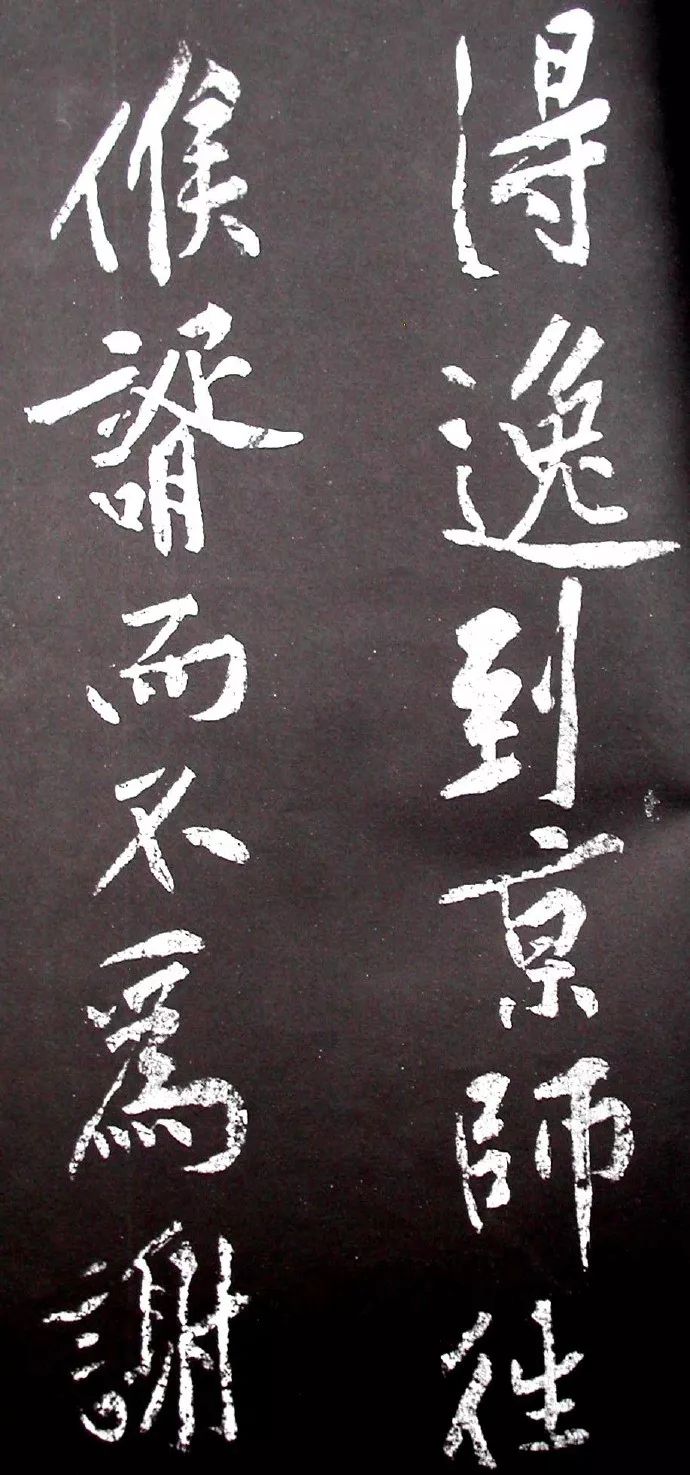 得逸到京師往
候諝而不爲謝